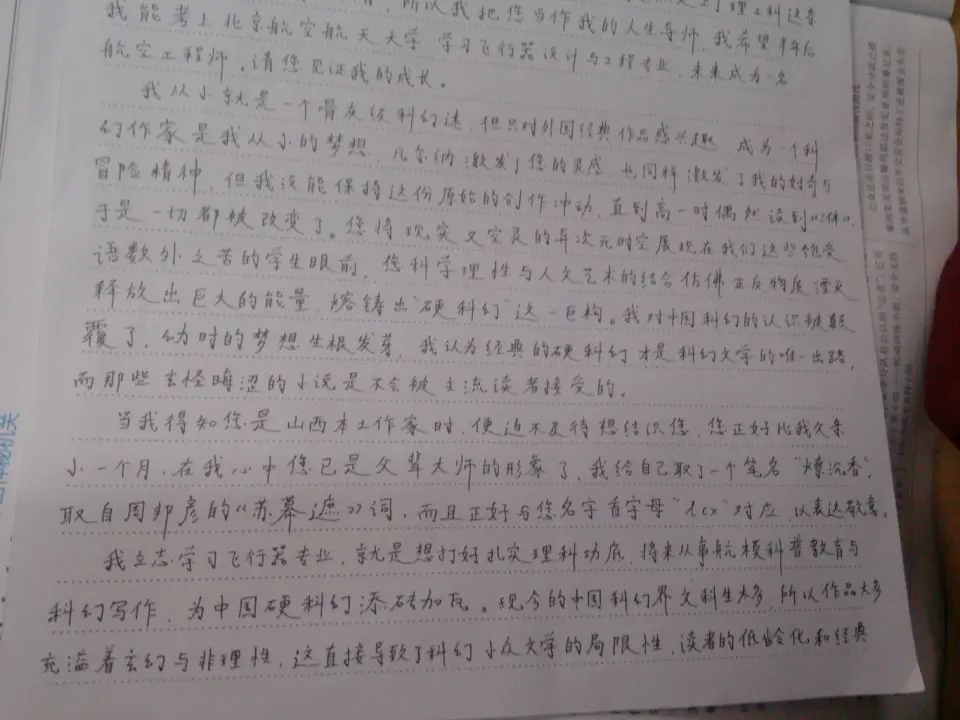 所以我把您当作我的人生导师,我希望半年后
我能考上北京航空航天大学 学习飞行器设计与工程专业,未来成为一名
航空工程师。请您见证我的成长。
我从小就是一个骨灰级科幻迷,但只对外国经典作品感兴趣,成为一个科
幻作家是我从小的梦想,凡尔纳激发了您的灵感,也同样激发了我的好奇与
冒险精神,但我没能保持这份原始的创作冲动,直到高一时偶然读到《三体》,
于是一切都被改变了。您将现实又空灵的异次元时空展现在我们这些饱受
语数外之苦的学生眼前,您科学理性与人文艺术的结合仿佛正反物质湮灭
释放出巨大的能量,熔铸出"硬科幻"这一巨构。我对中国科幻的认识被颠
覆了,幼时的梦想生根发芽,我认为经典的硬科幻才是科幻文学的唯一出路,
而那些玄怪晦涩的小说是不会被主流读者接受的。
当我得知您是山西本土作家时,便迫不及待想结识您,您正好比我父亲
小一个月,在我心中您已是父辈大师的形象了,我给自己取了一个笔名"燎沉香",
取自周邦彦的《苏幕遮》词,而且正好与您名字首字母"lcx"对应,以表达敬意。
我立志学习飞行器专业,就是想打好扎实理科功底,将来从事航模科普教育与
科幻写作,为中国硬科幻添砖加瓦。现今的中国科幻界文科生太多,所以作品大多
充溢着玄幻与非理性,这直接导致了科幻小众文学的局限性,读者的低龄化和经典